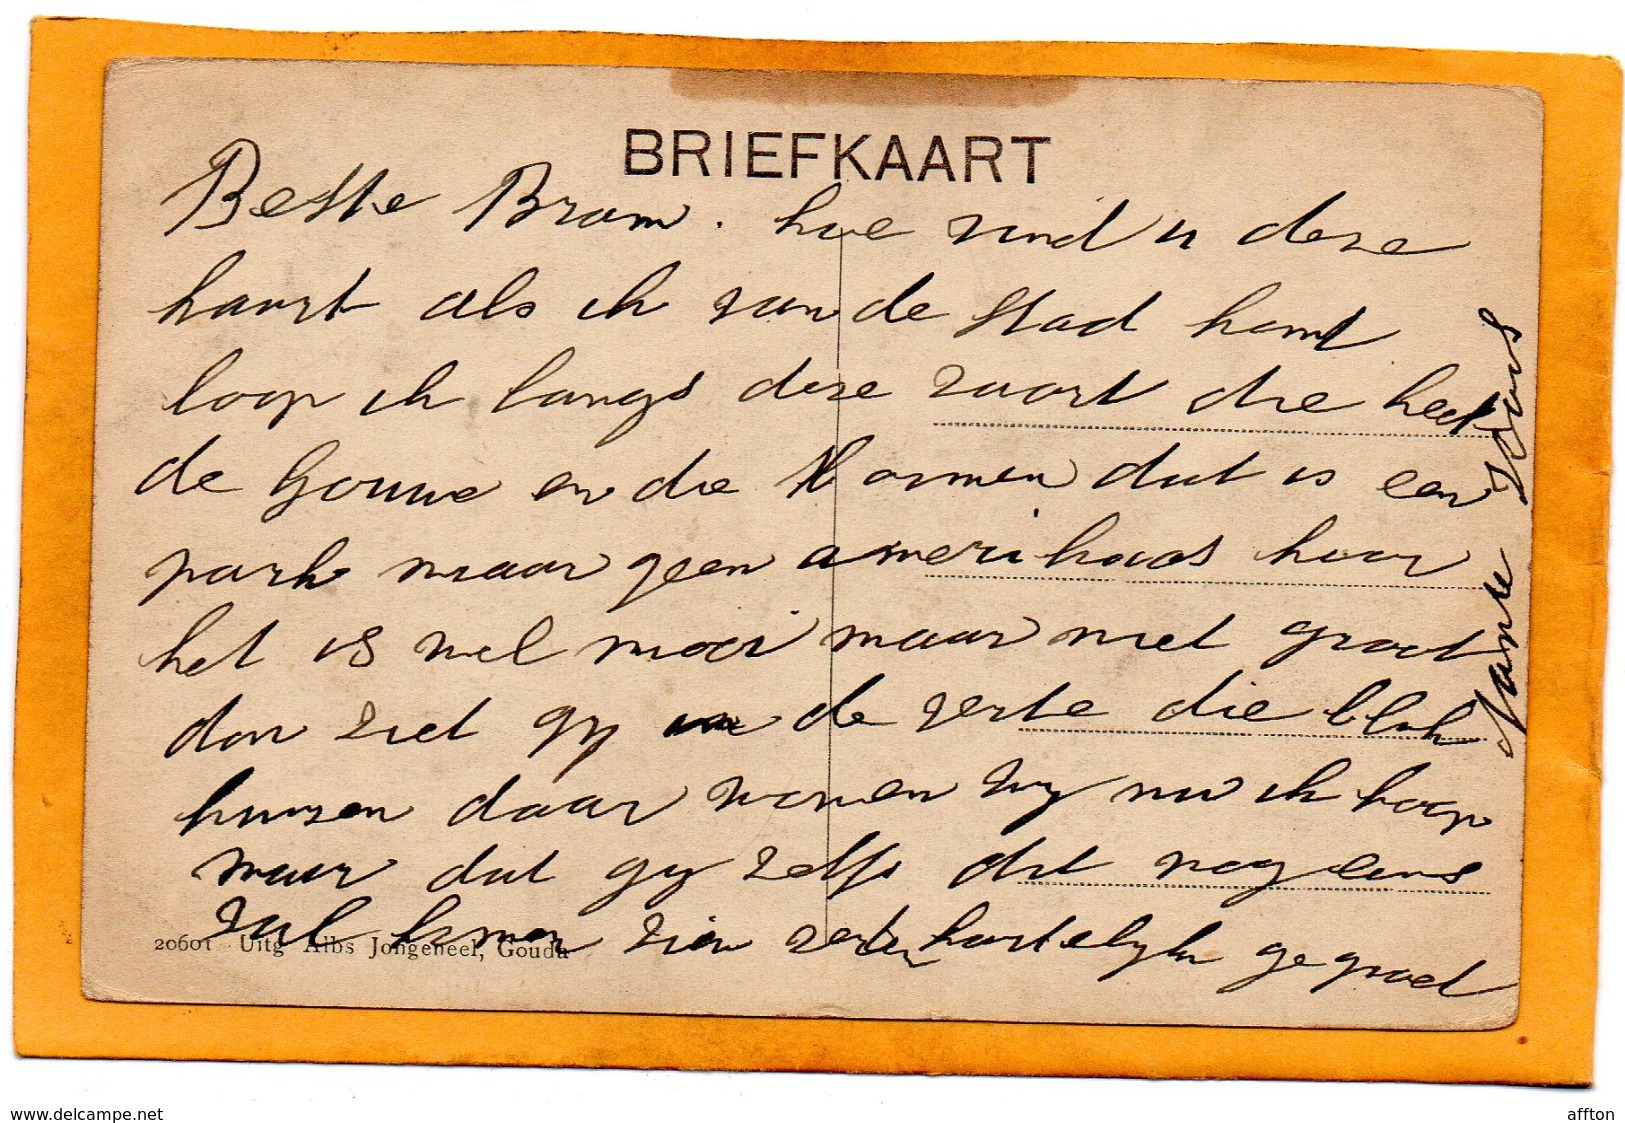 BRIEFKAART
Beste Bram. hoe vind u deze
kaart als ik van de stad komt
loop ik langs deze vaart die heet
de Gouwe en die bomen dat is een
park maar geen amerikaas hoor
het is wel mooi maar niet groot
dan ziet gy de verte die blok
huuzen daar wonen wy nu ik hoop
maar dat gy zelfs dit nog eens
zal komen zien verder hartelyk gegroet
Nante Kous
20601 Uitg Albs Jongeneel, Gouda
www.delcampe.net
affton